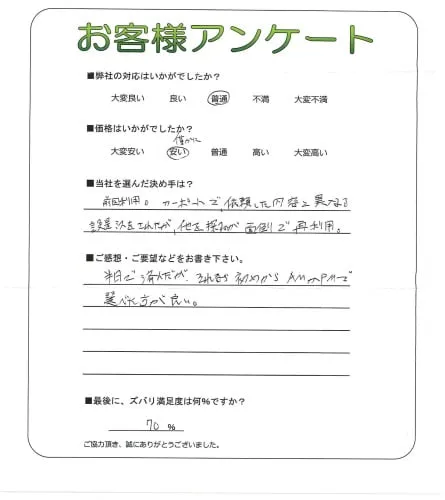 お客様アンケート
■弊社の対応はいかがでしたか？
大変良い 良い 普通 不満 大変不満
■価格はいかがでしたか？
僅かに
大変安い 安い 普通 高い 大変高い
■当社を選んだ決め手は？
前回利用。カーポートで、依頼した内容と異なる
設置をされたが、他を探すのが面倒で再利用。
■ご感想・ご要望などをお書き下さい。
半日で済んだが、それなら初めからAMかPMで
選べた方が良い。
■最後に、ズバリ満足度は何%ですか？
70 %
ご協力頂き、誠にありがとうございました。